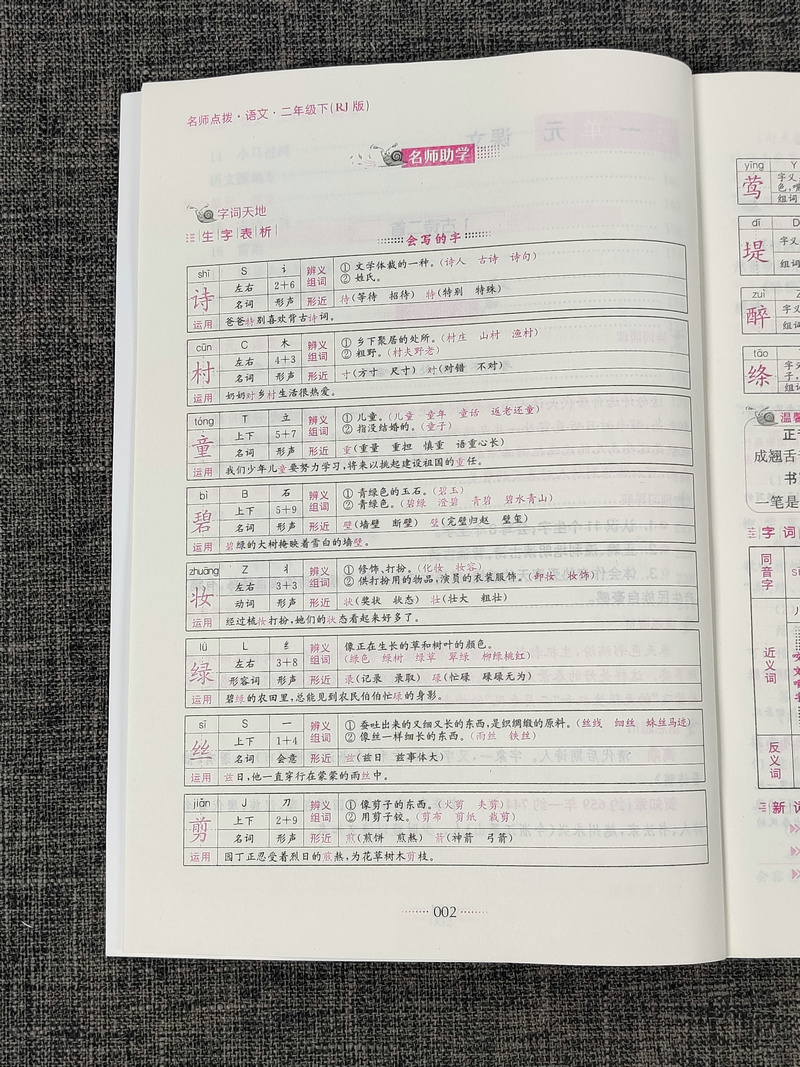 名师点拨·语文·二年级下(RJ版)
名师助学
字词天地
生字表析
会写的字
shī S 讠 辨义组词 ①文学体裁的一种。(诗人 古诗 诗句)
诗 左右 2+6 ②姓氏。
名词 形声 形近 待(等待 招待) 特(特别 特殊)
运用 爸爸特别喜欢背古诗词。
cūn C 木 辨义组词 ①乡下聚居的处所。(村庄 山村 渔村)
村 左右 4+3 ②粗野。(村夫野老)
名词 形声 形近 寸(方寸 尺寸) 对(对错 不对)
运用 奶奶对乡村生活很热爱。
tóng T 立 辨义组词 ①儿童。(儿童 童年 童话 返老还童)
童 上下 5+7 ②指没结婚的。(童子)
名词 形声 形近 重(重量 重担 慎重 语重心长)
运用 我们少年儿童要努力学习,将来以挑起建设祖国的重任。
bì B 石 辨义组词 ①青绿色的玉石。(碧玉)
碧 上下 5+9 ②青绿色。(碧绿 澄碧 青碧 碧水青山)
名词 形声 形近 壁(墙壁 断壁) 璧(完璧归赵 璧玺)
运用 碧绿的大树掩映着雪白的墙壁。
zhuāng Z 丬 辨义组词 ①修饰、打扮。(化妆 妆容)
妆 左右 3+3 ②供打扮用的物品,演员的衣装服饰。(卸妆 妆饰)
动词 形声 形近 状(奖状 状态) 壮(壮大 粗壮)
运用 经过梳妆打扮,她们的状态看起来好多了。
lǜ L 纟 辨义组词 像正在生长的草和树叶的颜色。
绿 左右 3+8 (绿色 绿树 绿草 翠绿 柳绿桃红)
形容词 形声 形近 录(记录 录取) 碌(忙碌 碌碌无为)
运用 碧绿的农田里,总能见到农民伯伯忙碌的身影。
sī S 一 辨义组词 ①蚕吐出来的又细又长的东西,是织绸缎的原料。(丝线 细丝 蛛丝马迹)
丝 上下 1+4 ②像丝一样细长的东西。(雨丝 铁丝)
名词 会意 形近 兹(兹日 兹事体大)
运用 兹日,他一直穿行在蒙蒙的雨丝中。
jiǎn J 刀 辨义组词 ①像剪子的东西。(火剪 夹剪)
剪 上下 2+9 ②用剪子铰。(剪布 剪纸 裁剪)
名词 形声 形近 煎(煎饼 煎熬) 箭(神箭 弓箭)
运用 园丁正忍受着烈日的煎熬,为花草树木剪枝。
002
yīng Y
莺 字义
组词
dī
堤 字义
组词
zuì
醉 字义
组词
tāo
绦 字义
组词
温馨
正
成翘舌
书
一笔是
字词
同音字
近义词
反义词
新词